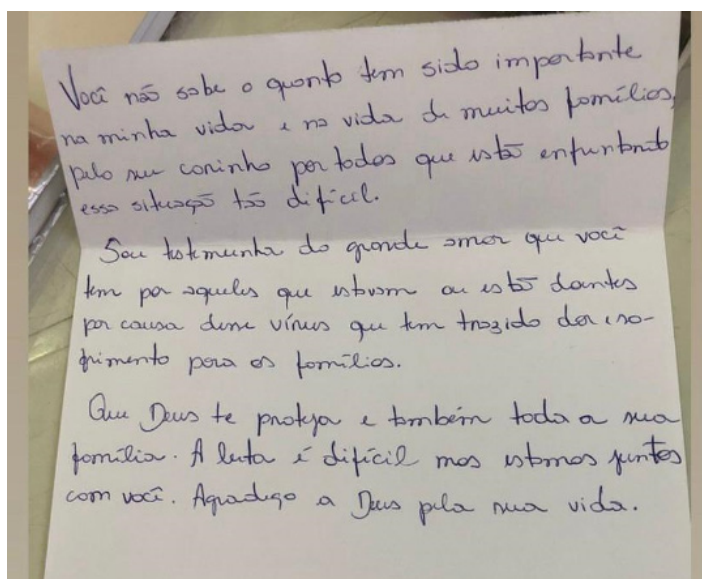 Você não sabe o quanto tem sido importante
na minha vida e na vida de muitas famílias,
pelo seu carinho por todos que estão enfrentando
essa situação tão difícil.
Sou testemunha do grande amor que você
tem por aqueles que estavam ou estão doentes
por causa desse vírus que tem trazido dor e so-
frimento para as famílias.
Que Deus te proteja e também toda a sua
família. A luta é difícil mas estamos juntos
com você. Agradeço a Deus pela sua vida.